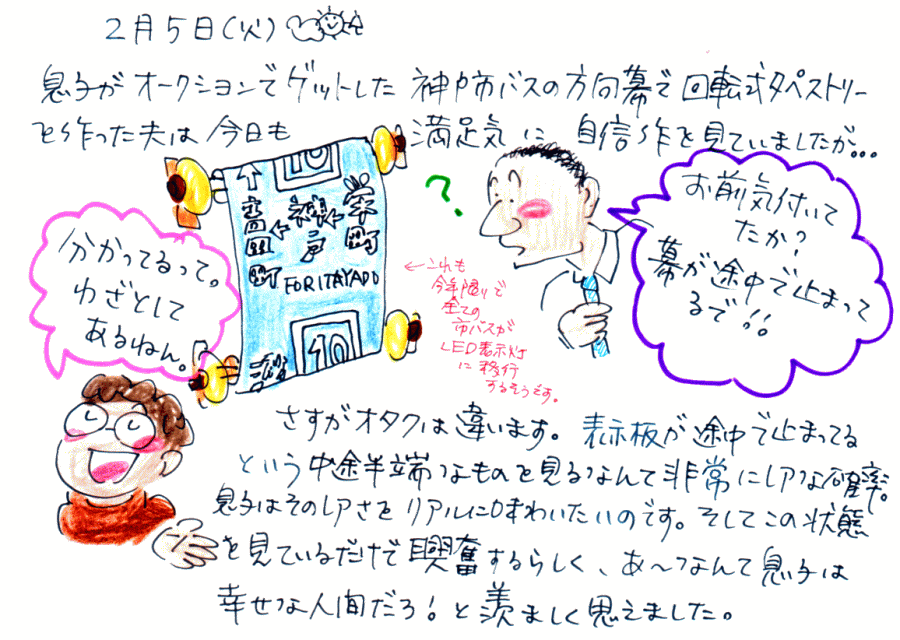 2月5日(火)
息子がオークションでゲットした 神戸市バスの方向幕で 回転式タペストリー
を作った夫は 今日も 満足気に 自信作を見ていましたが...
お前気付いて
たか?
幕が途中で止まって
るで!!
?
分かってるって。
わざとして
あるねん。
10
神戸
FORITAYADO
10
←これも
今年限りで
全ての
市バスが
LED表示灯
に移行
するそうです。
さすがオタクは違います。表示板が途中で止まってる
という中途半端なものを見るなんて非常にレアな確率。
息子はそのレアさをリアルに味わいたいのです。そしてこの状態
を見ているだけで興奮するらしく、あ〜なんて息子は
幸せな人間だろ!と羨ましく思えました。